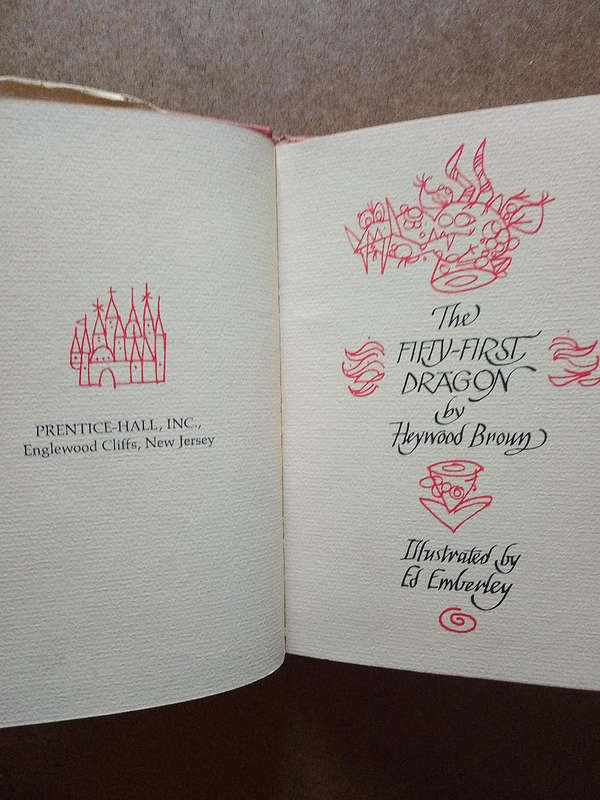 PRENTICE-HALL, INC.,
Englewood Cliffs, New Jersey
The
FIFTY-FIRST
DRAGON
by
Heywood Broun
Illustrated by
Ed Emberley